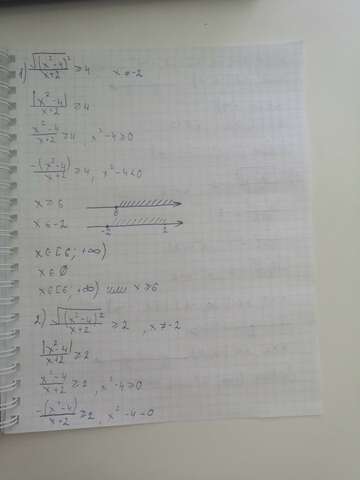 1) √(x²-4)²/x+2 ≥ 4 x ≠ -2
|x²-4|/x+2 ≥ 4
x²-4/x+2 ≥ 4, x²-4≥0
-(x²-4)/x+2 ≥ 4, x²-4<0
x ≥ 6
6
x ≤ -2
-2 2
x∈[6; +∞)
x∈∅
x∈[6; +∞) или x≥6
2) √(x²-4)²/x+2 ≥ 2, x≠-2
|x²-4|/x+2 ≥ 2
x²-4/x+2 ≥ 2, x²-4≥0
-(x²-4)/x+2 ≥ 2, x²-4<0